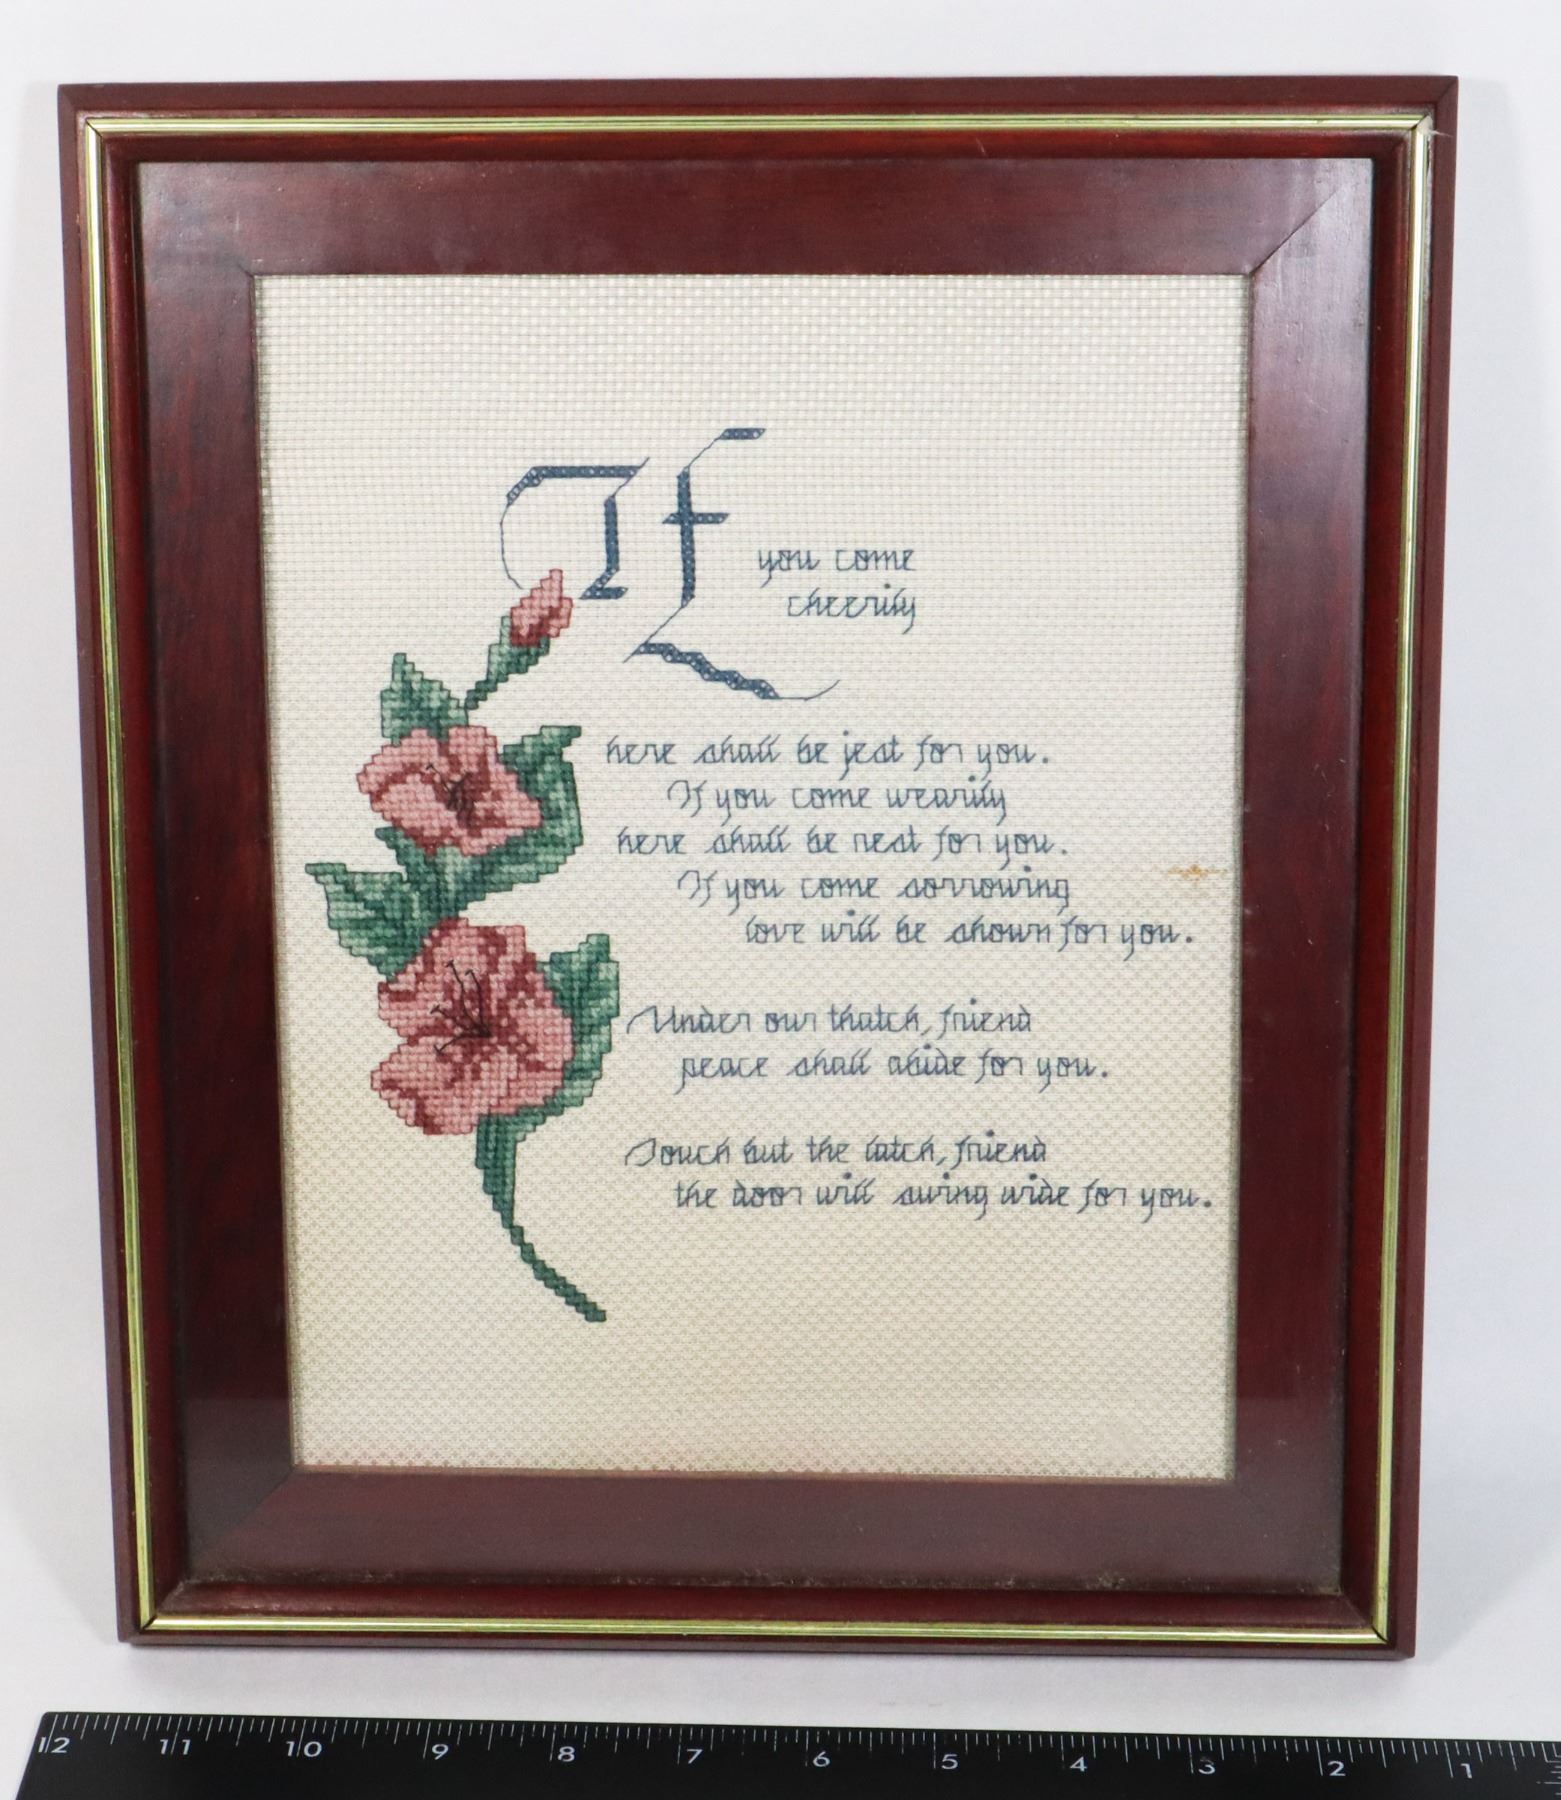 If you come
cheerily
here shall be jest for you.
If you come wearily
here shall be rest for you.
If you come sorrowing
love will be shown for you.
Under our thatch, friend
peace shall abide for you.
Touch but the latch, friend
the door will swing wide for you.
12 11 10 9 8 7 6 5 4 3 2 1